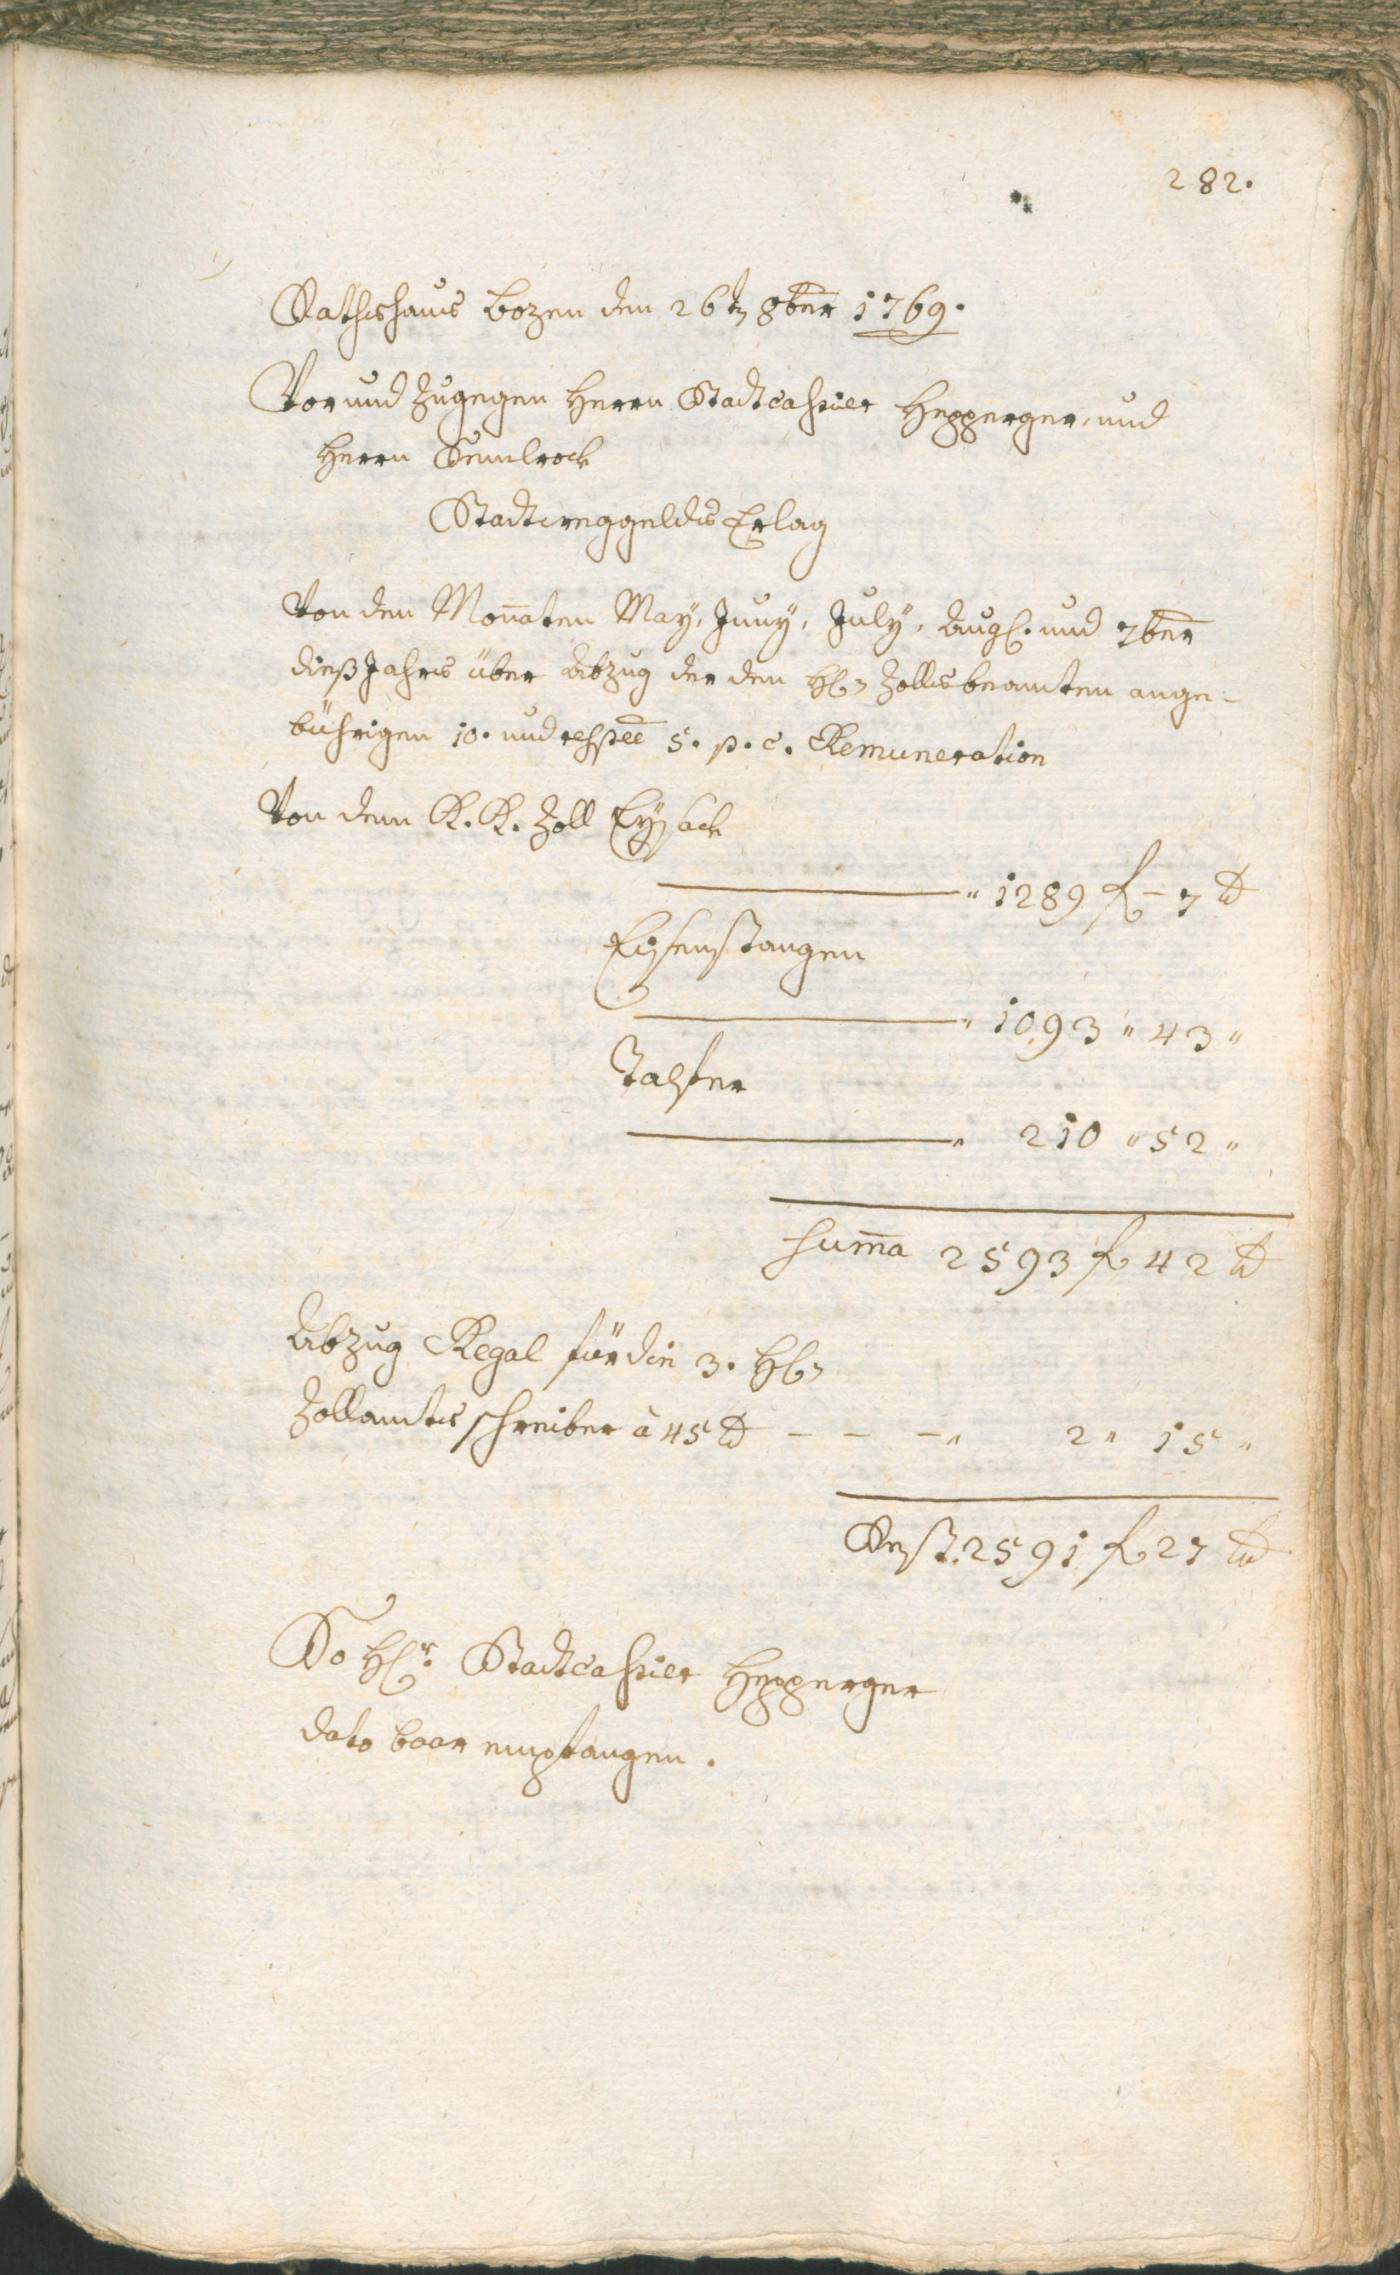 282.
Rathshaus Bozen den 26tn 8ber 1769.
Vor und Zugegen Herrn Stadtcassier Hepperger, und
Herrn Semlrock
Stadtweggelds Erlag
Von den Monaten May, Juny, July, Augs. und 7ber
dieß Jahrs über Abzug der den H. Zollsbeamten ange-
bührigen 10. und respee 5. p. c. Remuneration
Von dem K. K. Zoll Eysack
" 1289 f - 7 xr
Eisenstangen
" 1093 " 43 "
Talfer
" 210 " 52 "
Summa 2593 f 42 xr
Abzug Regal für die 3. H.
Zollamtsschreiber à 45 xr - - - " 2 " 15 "
Rest. 2591 f 27 xr
So Hr. Stadtcassier Hepperger
dato baar empfangen.